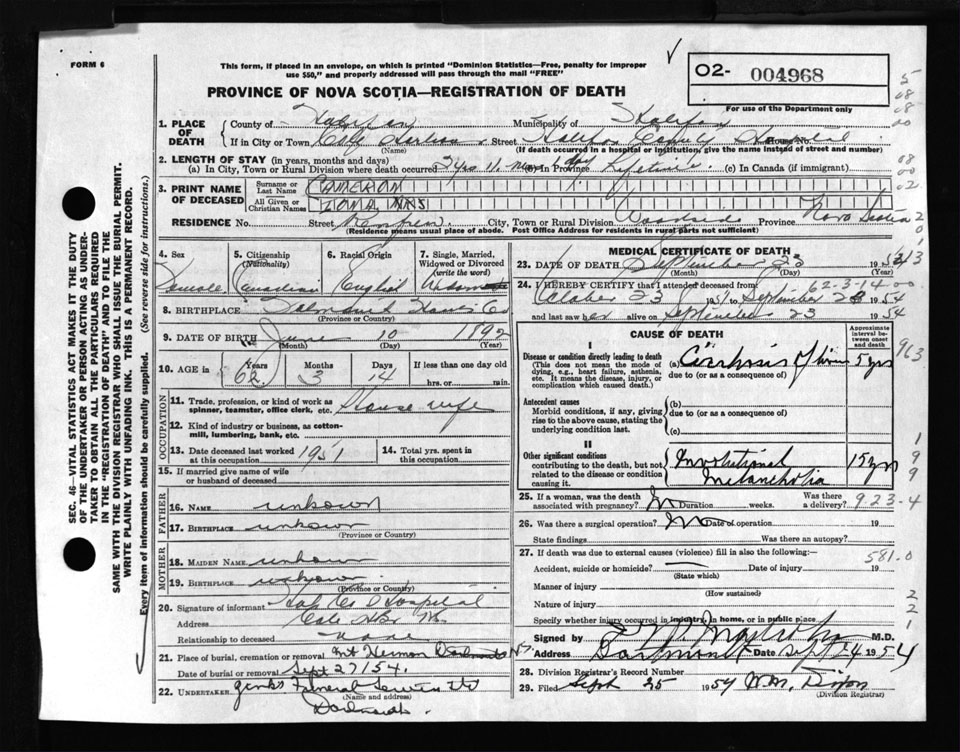 FORM 6
This form, if placed in an envelope, on which is printed "Dominion Statistics—Free, penalty for improper
use $50," and properly addressed will pass through the mail "FREE"
O2- 004968
For use of the Department only
PROVINCE OF NOVA SCOTIA—REGISTRATION OF DEATH
1. PLACE OF DEATH
County of Halifax Municipality of Halifax
If in City or Town Cole Harbour Street Halifax County Hospital House No.
(Name) (If death occurred in a hospital or institution, give the name instead of street and number)
2. LENGTH OF STAY (in years, months and days)
(a) In City, Town or Rural Division where death occurred 2 yrs 11 mons days (b) In Province Lifetime (c) In Canada (if immigrant)
3. PRINT NAME OF DECEASED
Surname or Last Name CAMERON
All Given or Christian Names
RESIDENCE No. Street Renfrew City, Town or Rural Division Woodside Province Nova Scotia
(Residence means usual place of abode. Post Office Address for residents in rural parts not sufficient)
4. Sex Female
5. Citizenship (Nationality) Canadian
6. Racial Origin English
7. Single, Married, Widowed or Divorced (write the word)
8. BIRTHPLACE
(Province or Country)
9. DATE OF BIRTH June 10 1892
(Month) (Day) (Year)
10. AGE in Years 62 Months 3 Days 14 If less than one day hrs. or min.
OCCUPATION
11. Trade, profession, or kind of work as spinner, teamster, office clerk, etc. House wife
12. Kind of industry or business, as cotton-mill, lumbering, bank, etc.
13. Date deceased last worked at this occupation 1951
14. Total yrs. spent in this occupation
15. If married give name of wife or husband of deceased
FATHER
16. NAME unknown
17. BIRTHPLACE unknown
(Province or Country)
MOTHER
18. MAIDEN NAME unknown
19. BIRTHPLACE unknown
(Province or Country)
20. Signature of informant Hfx Co Hospital
Address Cole Hbr
Relationship to deceased none
21. Place of burial, cremation or removal Mt Hermon Dartmouth NS
Date of burial or removal Sept 27/54
22. UNDERTAKER Funeral Service Ltd
(Name and address)
Dartmouth.
MEDICAL CERTIFICATE OF DEATH
23. DATE OF DEATH September 23 1954
(Month) (Day)
62-3-14
24. I HEREBY CERTIFY that I attended deceased from
October 23 1951 to September 23 1954
and last saw her alive on September 23 1954
CAUSE OF DEATH
Approximate interval between onset and death
I
Disease or condition directly leading to death
(This does not mean the mode of dying, e.g., heart failure, asthenia, etc. It means the disease, injury, or complication which caused death.)
(a) Cirrhosis of liver 5 yrs
due to (or as a consequence of)
Antecedent causes
Morbid conditions, if any, giving rise to the above cause, stating the underlying condition last.
(b)
due to (or as a consequence of)
(c)
II
Other significant conditions contributing to the death, but not related to the disease or condition causing it.
Involutional Melancholia 15 yrs
25. If a woman, was the death associated with pregnancy? Duration weeks. Was there a delivery?
923-4
26. Was there a surgical operation? Date of operation 19
State findings Was there an autopsy?
27. If death was due to external causes (violence) fill in also the following:—
581.0
Accident, suicide or homicide? Date of injury 19
(State which)
Manner of injury
(How sustained)
Nature of injury
Specify whether injury occurred in industry, in home, or in public place
Signed by M.D.
Address Dartmouth Date Sept 24 1954
28. Division Registrar's Record Number
29. Filed Sept 25 1954 W.M. Dixon
(Division Registrar)
SEC. 46—VITAL STATISTICS ACT MAKES IT THE DUTY
OF THE UNDERTAKER OR PERSON ACTING AS UNDER-
TAKER TO OBTAIN ALL THE PARTICULARS REQUIRED
IN THE "REGISTRATION OF DEATH" AND TO FILE THE
SAME WITH THE DIVISION REGISTRAR WHO SHALL ISSUE THE BURIAL PERMIT.
WRITE PLAINLY WITH UNFADING INK. THIS IS A PERMANENT RECORD.
Every item of information should be carefully supplied. (See reverse side for instructions.)